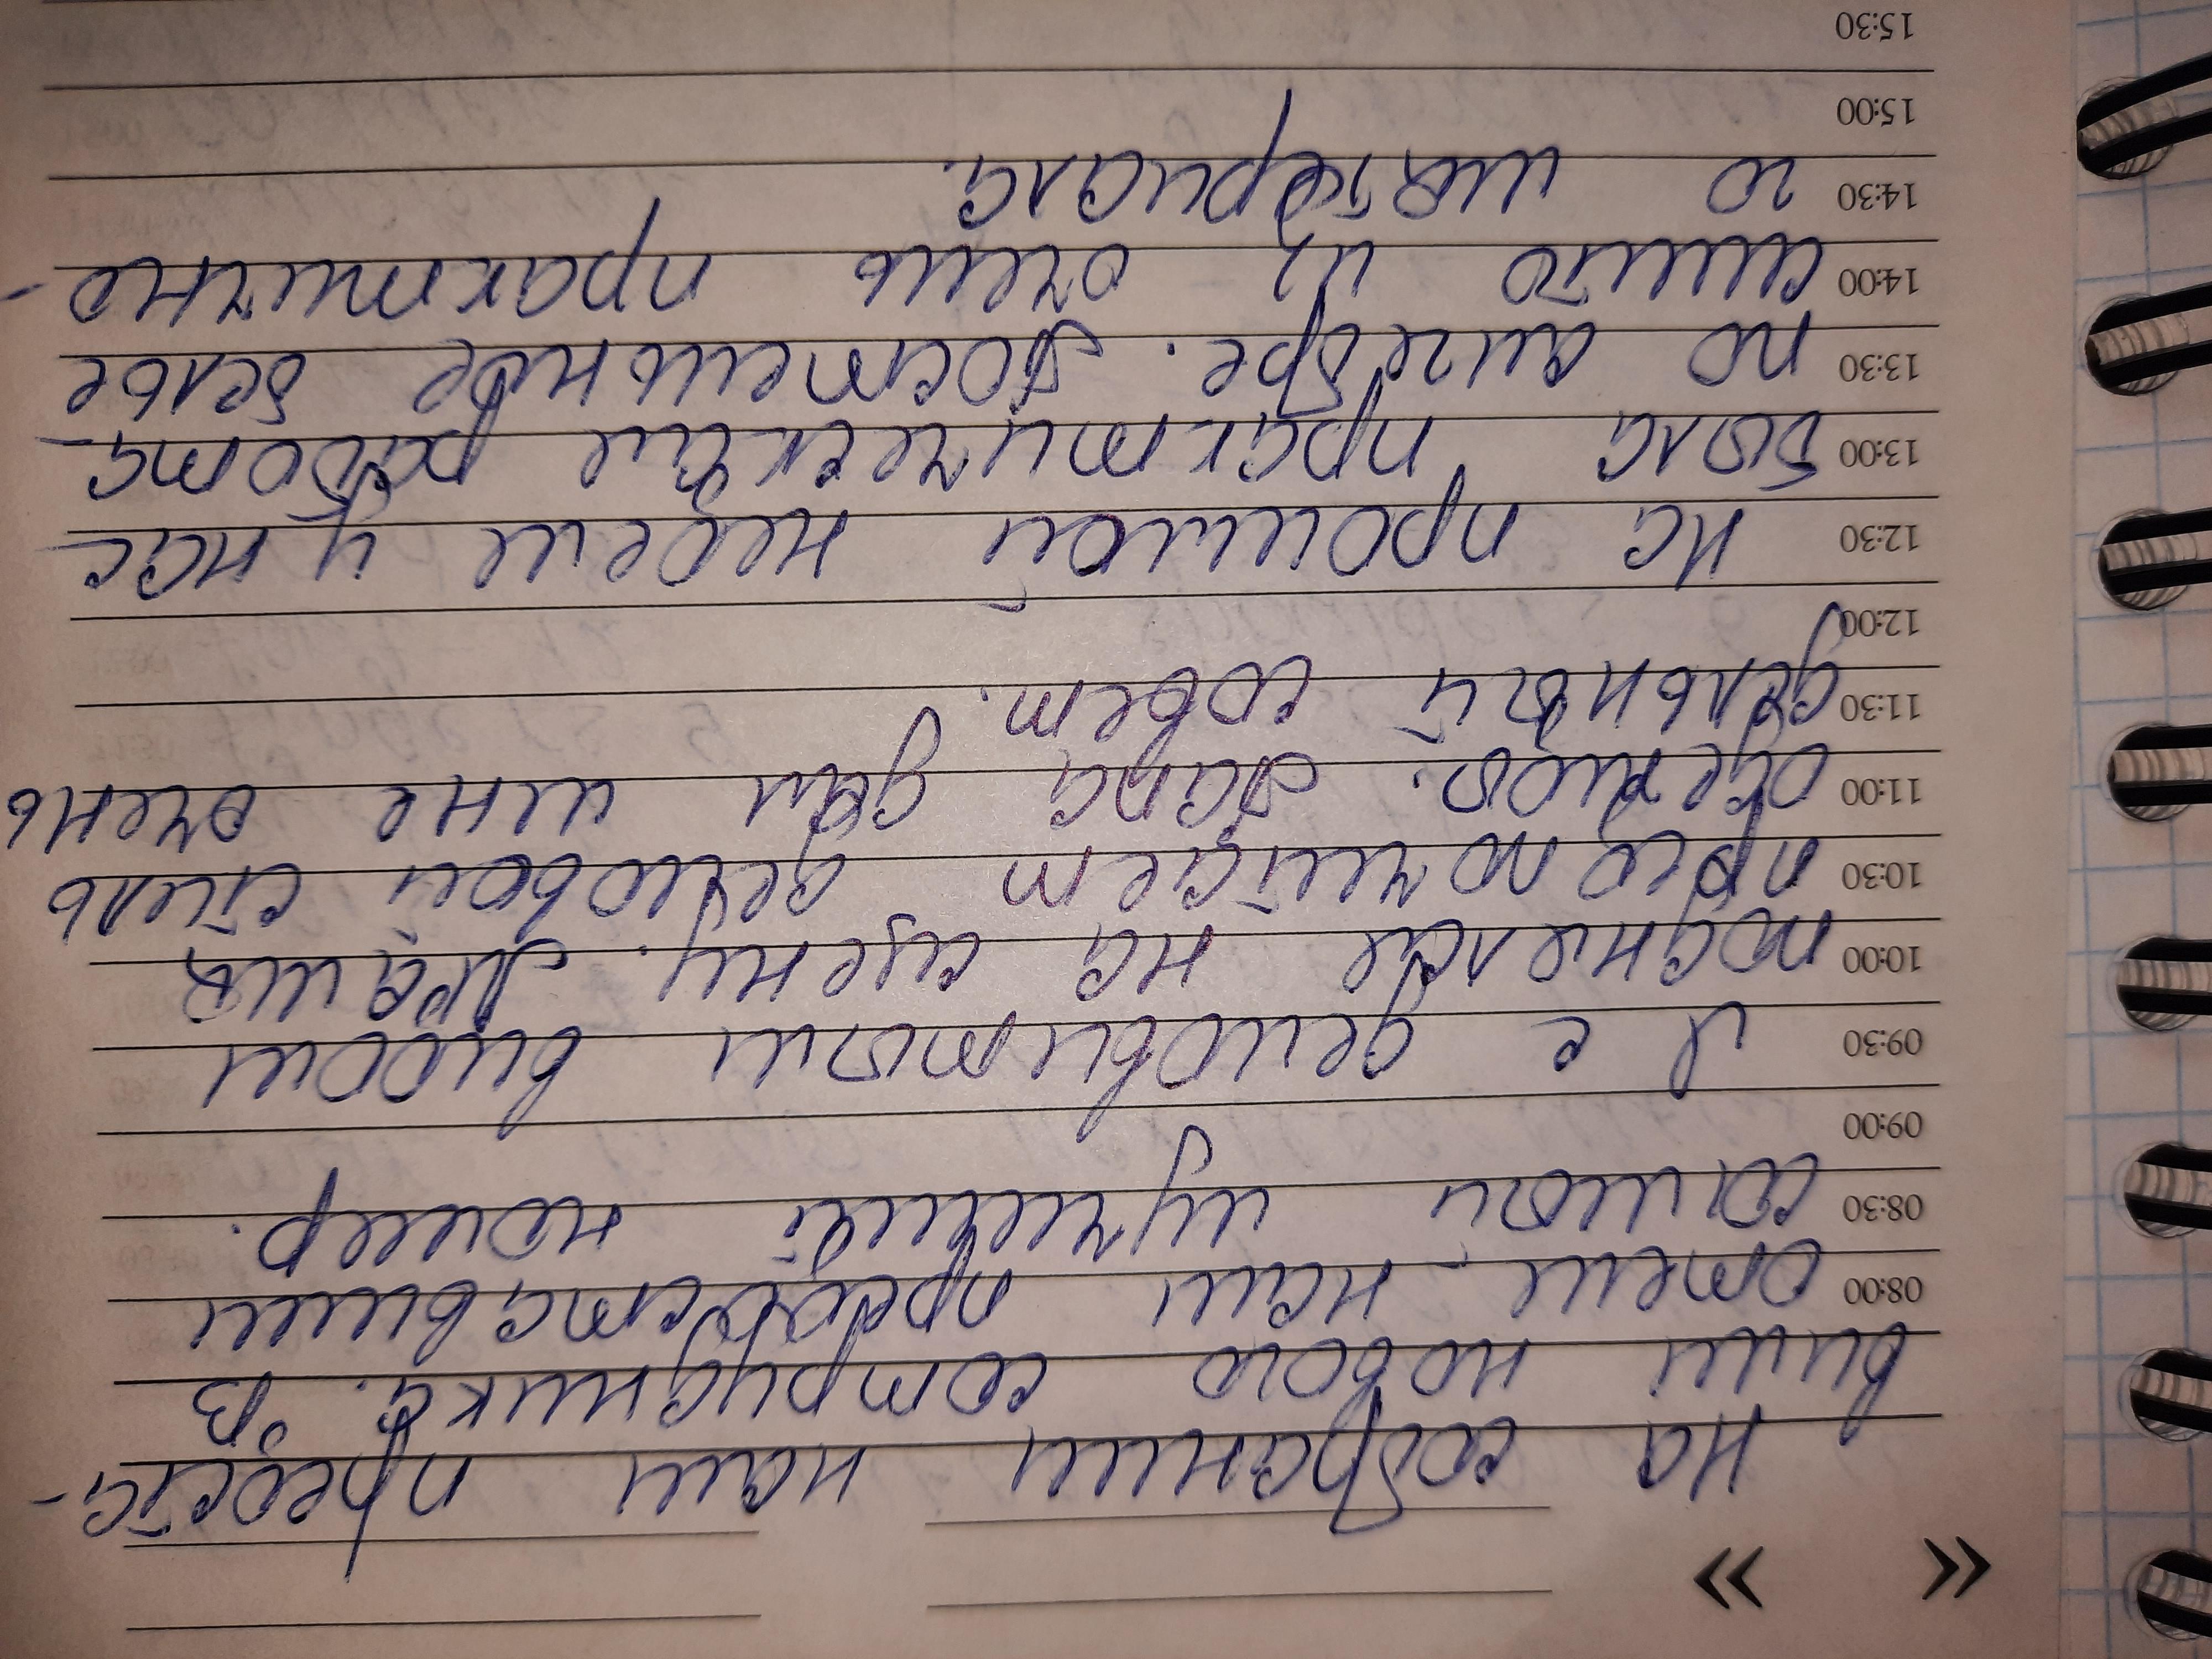 На собрании нам предста-
вили новоо сотрудника. В
отеле нам предоставили
самый лучший номер.
Я с деловитым видом
поднялся на сцену.
предпочитает деловой стиль
одежды. Папа дал мне очень
дельный совет.
На прошлой неделе у нас
была практическая работа
по алгебре. Постельное белье
сшито из очень практично-
го материала.
08:00
08:30
09:00
09:30
10:00
10:30
11:00
11:30
12:00
12:30
13:00
13:30
14:00
14:30
15:00
15:30